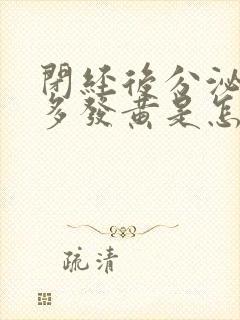 閉經後分泌
多發黃是怎
疏清